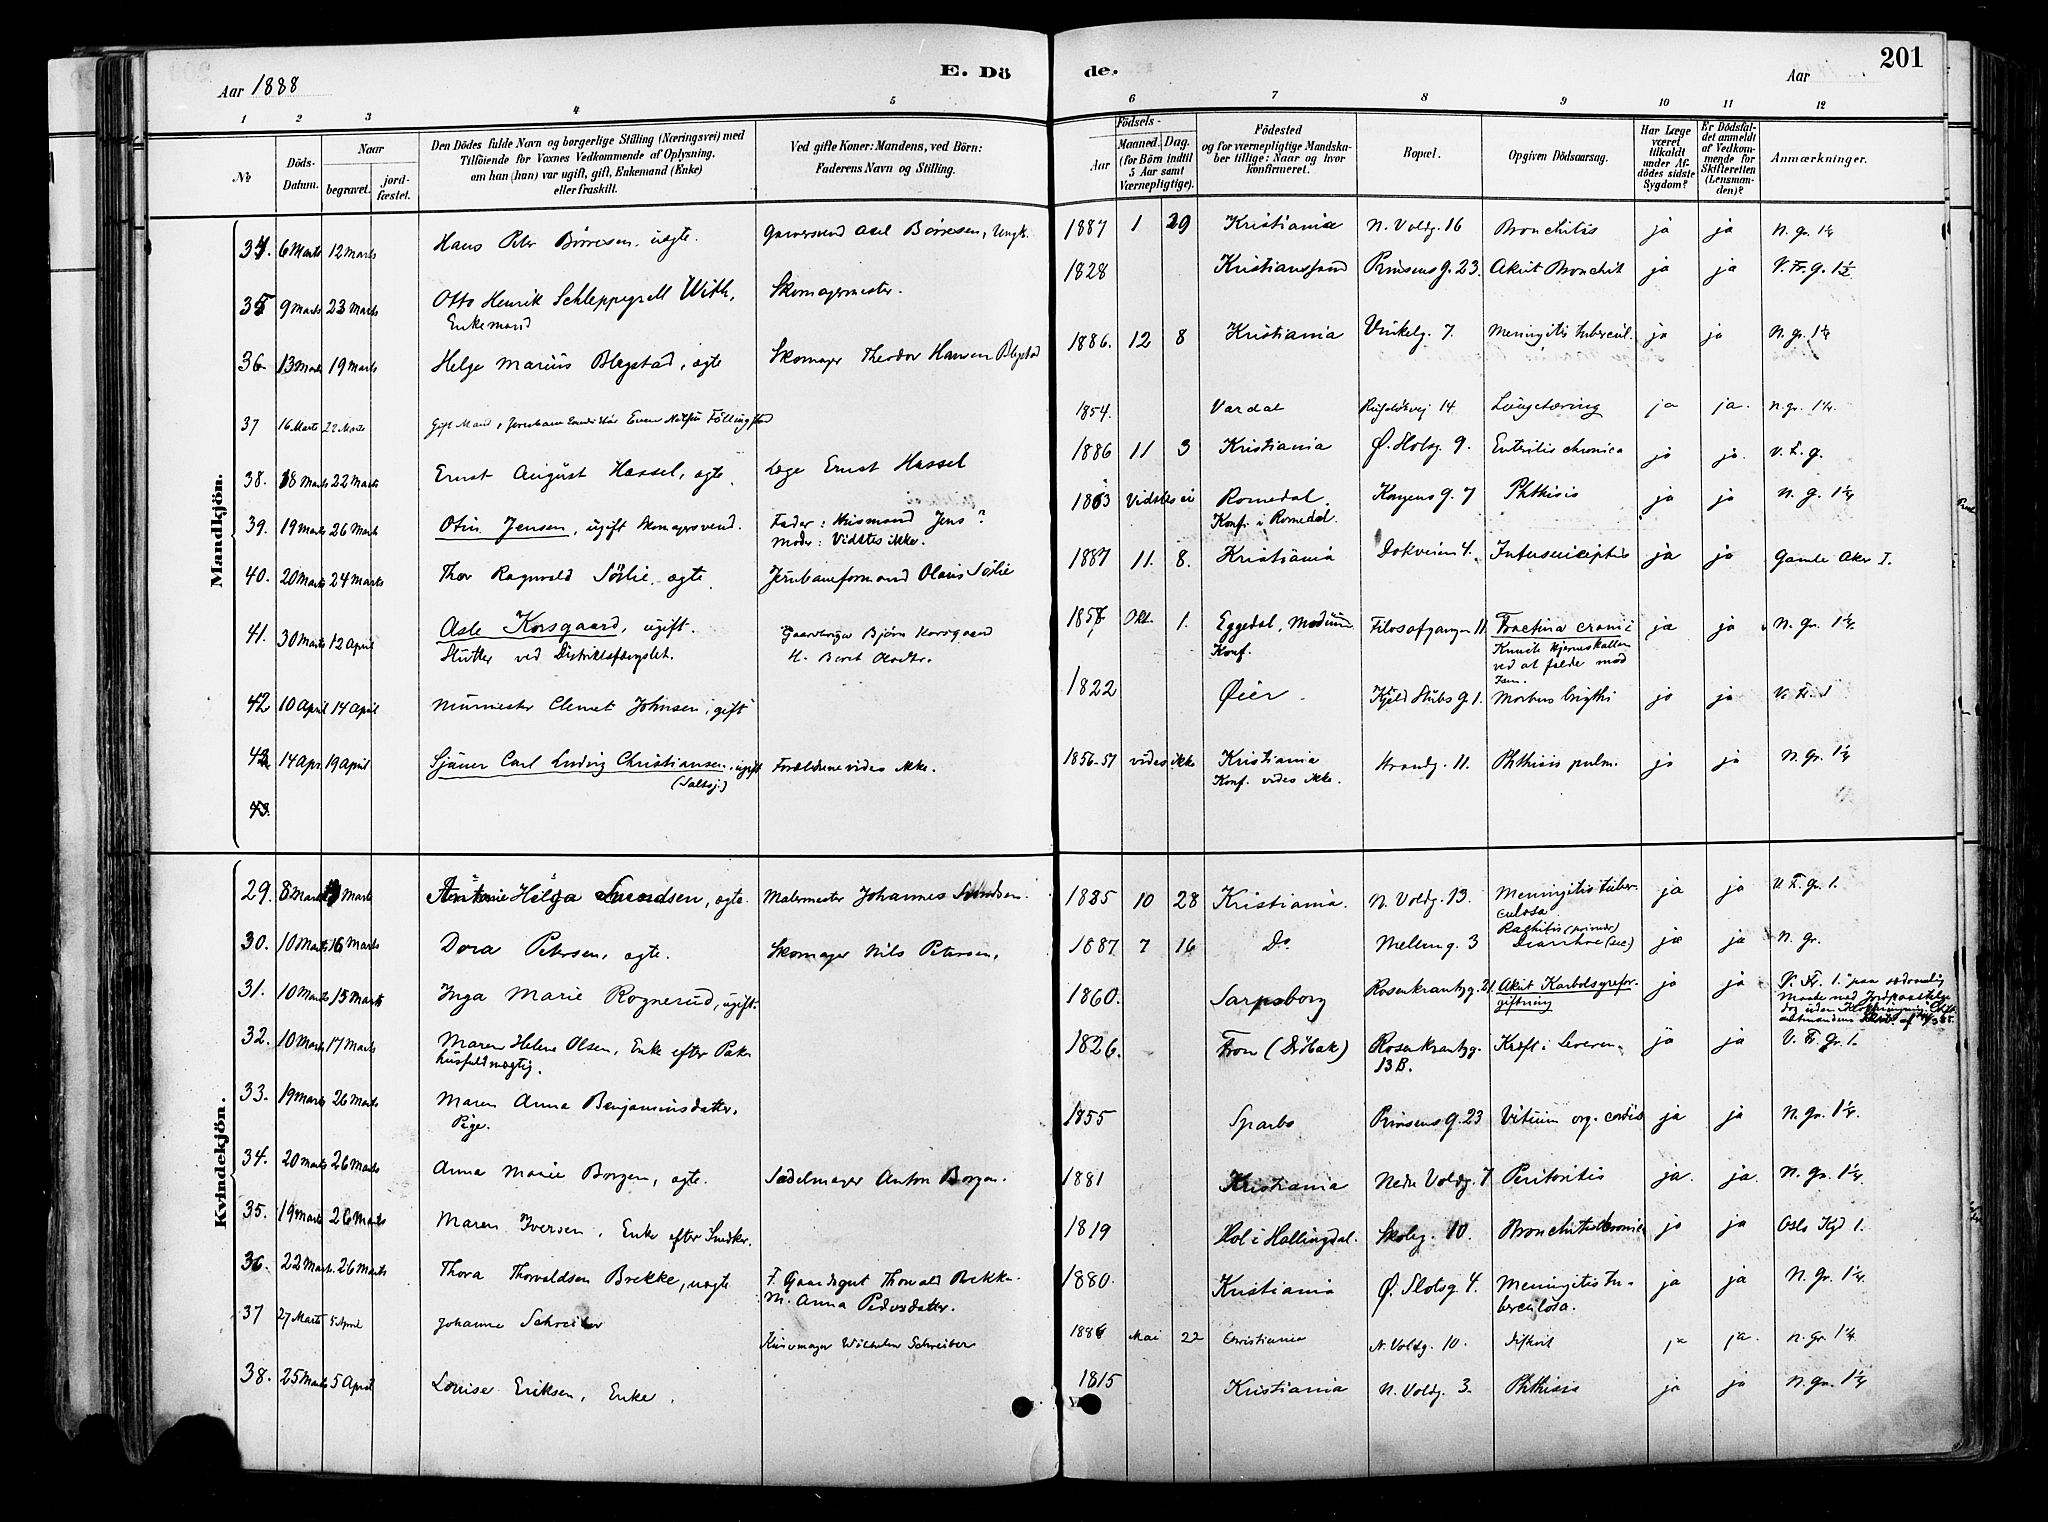 201
E. Döde.
Aar 1888
Aar
1 2 3 4 5 6 7 8 9 10 11 12
No
Döds-Datum.
Naar
begravet.
jord-fæstet.
Den Dödes fulde Navn og borgerlige Stilling (Næringsvei) med
Tilföiende for Voxnes Vedkommende af Oplysning.
om han (hun) var ugift, gift, Enkemand (Enke)
eller fraskilt.
Ved gifte Koner: Mandens, ved Börn:
Faderens Navn og Stilling.
Födsels-
Aar
Maaned. Dag.
(for Börn indtil
5 Aar samt
Værnepligtige).
Födested
og for værnepligtige Mandska-
ber tillige: Naar og hvor
konfirmeret.
Bopæl.
Opgiven Dödsaarsag.
Har Læge
været
tilkaldt
under Af-
dödes sidste
Sygdom?
Er Dödsfal-
det anmeldt
af Vedkom-
mende for
Skifteretten
(Lensman-
den)?
Anmærkninger.
Mandkjön.
34. 6 Marts 12 Marts Hans Peter Börresen, uægte. Axel Börresen, Ungk. 1887 1 29 Kristiania N. Voldg. 16 Bronchitis ja ja N. gr. 1 1/4
35 9 Marts 23 Marts Otto Henrik Schleppegrell With, Skomagermester. 1828 Kristianssand Prinsens G. 23. Akut Bronchit ja ja V. Fr. g. 1 1/2
Enkemand
36 13 Marts 19 Marts Helge Marius Blegstad, ægte Skomager Theodor Hansen Blegstad 1886. 12 8 Kristiania Vinkelg. 7. Meningitis tubercul. ja ja N. gr. 1 1/4
37 16 Marts 22 Marts Gift Mand, Even 1854. Vardal 14. Lungetæring ja ja. N. gr. 1 1/4.
38. 18 Marts 22 Marts Ernst August Hassel, ægte. Læge Ernst Hassel 1886 11 3 Kristiania Ø. Slotsg. 9. Enteritis chronica ja ja. V. F. g.
39. 19 Marts 26 Marts Otin Jensen, ugift Skomagersvend. Fader: Husmand Jens? 1863 Vidstes ei Romedal. Kongens G. 7 Phthisis ja ja N. g. 1 1/4
Moder: Vidstes ikke. Konf. i Romedal.
40. 20 Marts 24 Marts Thor Ragnvald Sörlie, ægte. Jernbaneformand Olaus Sörlie 1887 11. 8. Kristiania Dokveien 4. ja ja Gamle Aker I.
41. 30 Marts 12 April Asle Korsgaard, ugift. Gaardbruger Björn Korsgaard 1857 Okt. 1. Eggedal, Modum. Filosofgangen 11. Fractura cranii ja ja N. gr. 1 1/4.
Slutter ved Distriktsfængslet. H. Beret Konf. Knuste Hjerneskallen
ved at falde mod
42 10 April 14 April Murmester Clemet Johnsen, gift 1822 Øier. Kjeld Stubs G. 1. Morbus brigthi ja ja V. Fr. 1
43 14 Apr. 19 April Sjauer Carl Ludvig Christiansen, ugift Forældrene vides ikke. 1856-57 vides ikke Kristiania Strandg. 11. Phthisis pulm. ja ja N. Gr. 1 1/4
(Saltsj.) Konf. vides ikke.
43.
Kvindekjön.
29. 8 Marts Marts Antonie Helga Svendsen, ægte. Malermester Johannes Svendsen. 1885 10 28 Kristiania. N. Voldg. 13. Meningitis tuber- ja ja V. F. gr. 1.
culosa.
30. 10 Marts 16 Marts Dora Petersen, ægte. Skomager Nils Petersen. 1887 7 16 Do Mellemg. 3 Rachitis (primær) ja ja N. gr.
Diarrhoe (sec)
31. 10 Marts 15 Marts Inga Marie Rognerud, ugift. 1860. Sarpsborg Rosenkrantzg. 21. Akut Karbolsyrefor- ja ja V. Fr. 1. paa sædvanlig
giftning Maade med Jordpaakastelse
dog uden Klokkeringning
32. 10 Marts 17 Marts Maren Helene Olsen, Enke efter Pak- 1826. Fron (Dröbak) Rosenkrantzg. Kræft i Leveren. ja ja V. Fr. gr. 1.
husfuldmægtig. 13 B.
33. 19 Marts 26 Marts Maren Anna Benjaminsdatter. 1855 Sparbo Prinsens G. 23 Vitium org. cordis ja ja N. gr. 1 1/4.
Pige.
34. 20 Marts 26 Marts Anna Marie Borgen, ægte. Sadelmager Anton Borgen. 1881 Kristiania Nedre Voldg. 7 Peritonitis ja. ja. N. Gr. 1 1/4
35. 19 Marts 26 Marts Maren Iversen, Enke efter Snedker. 1819 Hol i Hallingdal. Skoleg. 10. Bronchitis kronica ja ja Oslo Kgd 1.
36. 22 Marts 26 Marts Thora Thorvaldsen Brekke, uægte F. Gaardsgut Thorvald Brekke. 1880. Kristiania Ø. Slotsg. 4. Meningitis tu- ja ja N. Gr. 1 1/4
M. Anna Pedersdatter. berculosa.
37 27 Marts 5 April Johanne Schreiber Wilhelm Schreiber 1886 Mai 22 Christiania N. Voldg. 10. Difterit ja ja. N. Gr. 1 1/4
38. 25 Marts 5 April Louise Eriksen, Enke. 1815 Kristiania N. Voldg. 3. Phthisis ja ja N. Gr. 1 1/4